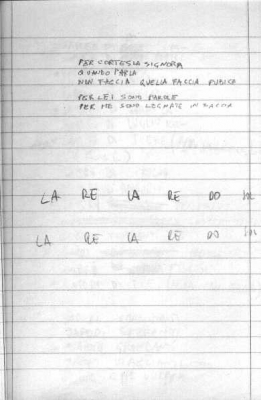 PER CORTESIA SIGNORA
QUANDO PARLA
NON FACCIA QUELLA FACCIA PUDICA
PER LEI SONO PAROLE
PER ME SONO LEGNATE IN FACCIA
LA RE LA RE DO SOL
LA RE LA RE DO SOL